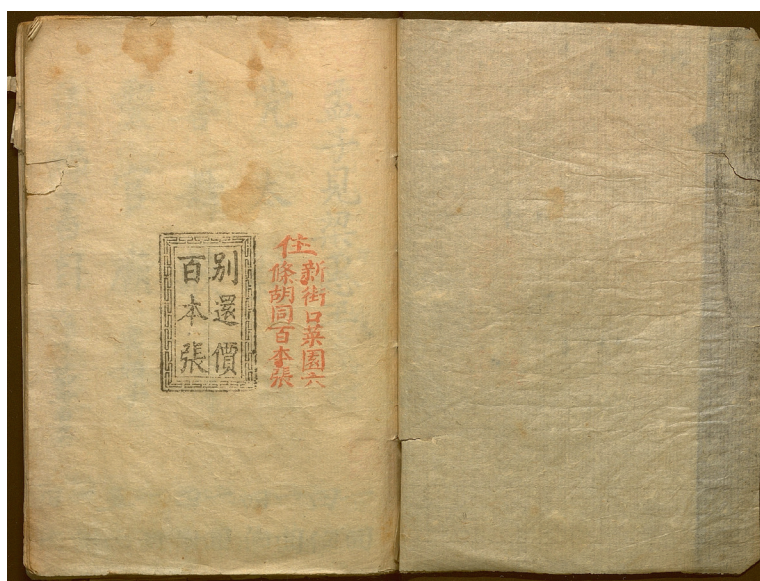 住
新街口菜園六
條胡同百本張
別還價
百本張